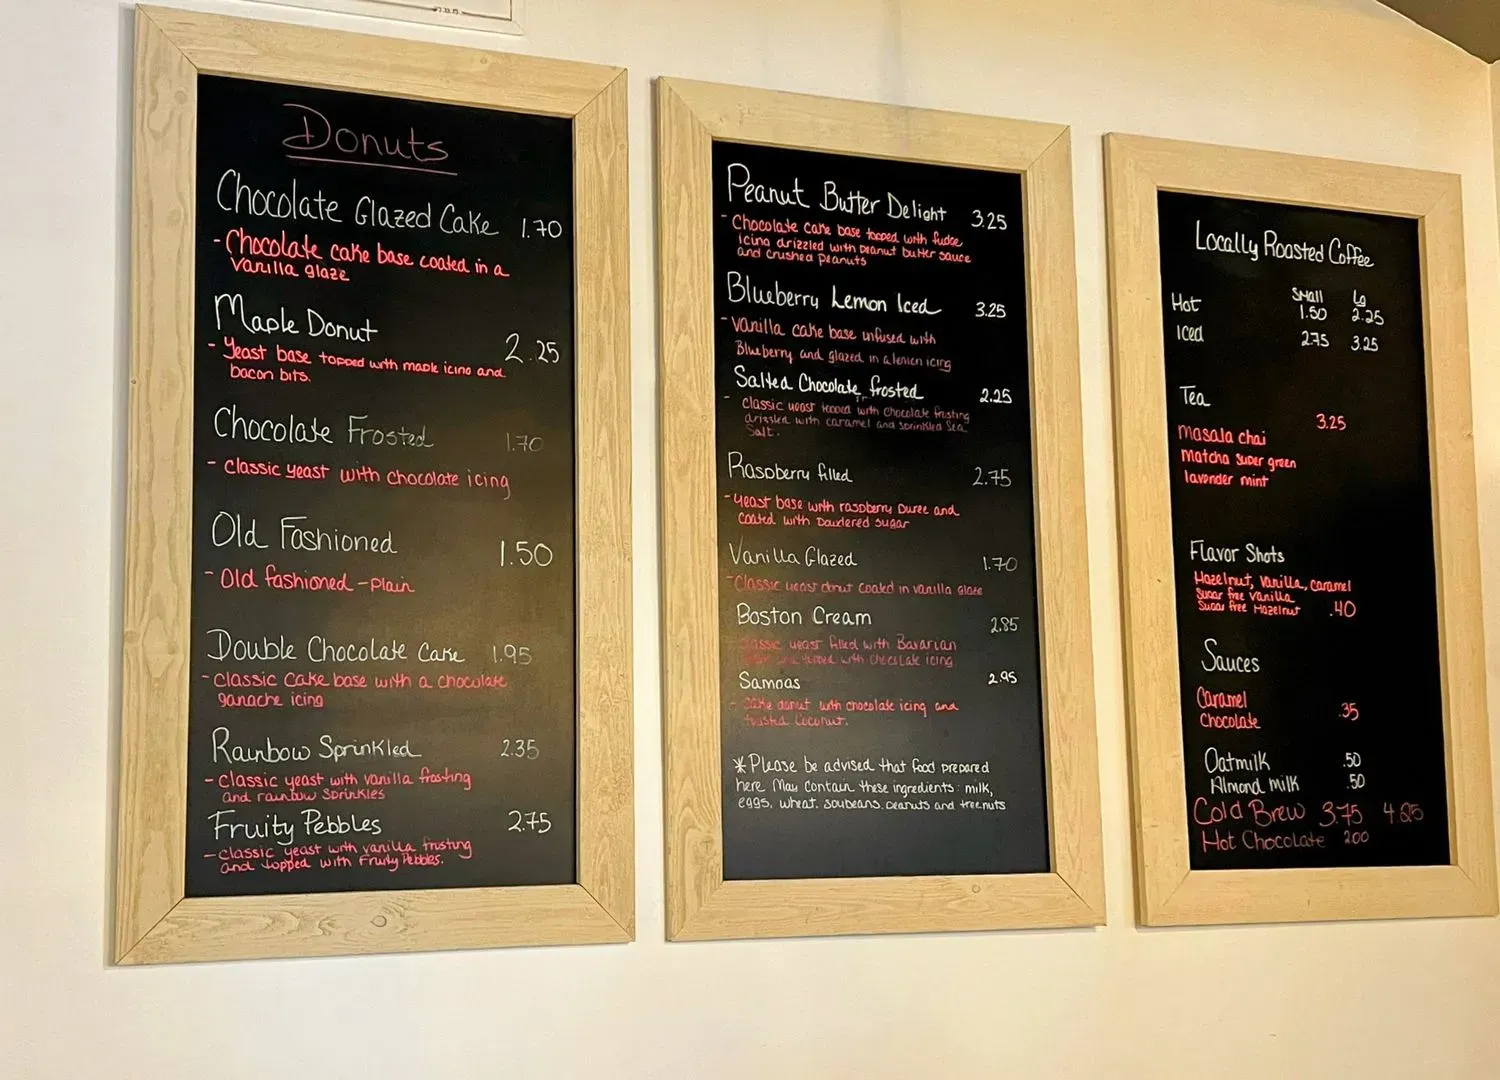 Donuts
Chocolate Glazed Cake 1.70
- Chocolate cake base coated in a
vanilla glaze
Maple Donut 2.25
- Yeast base topped with maple icing and
bacon bits.
Chocolate Frosted 1.70
- classic yeast with chocolate icing
Old Fashioned 1.50
- Old fashioned - plain
Double Chocolate Cake 1.95
- classic cake base with a chocolate
ganache icing
Rainbow Sprinkled 2.35
- classic yeast with vanilla frosting
and rainbow sprinkles
Fruity Pebbles 2.75
- classic yeast with vanilla frosting
and topped with Fruity Pebbles.
Peanut Butter Delight 3.25
- Chocolate cake base topped with fudge
icing drizzled with peanut butter sauce
and crushed peanuts
Blueberry Lemon Iced 3.25
- vanilla cake base infused with
Blueberry and glazed in a lemon icing
Salted Chocolate frosted 2.25
- classic yeast topped with chocolate frosting
drizzled with caramel and sprinkled Sea
Salt.
Raspberry filled 2.75
- Yeast base with raspberry puree and
coated with powdered sugar
Vanilla Glazed 1.70
- Classic yeast donut coated in vanilla glaze
Boston Cream 2.85
classic yeast filled with Bavarian
and topped with chocolate icing
Samoas 2.95
- cake donut with chocolate icing and
toasted coconut.
* Please be advised that food prepared
here may contain these ingredients: milk,
eggs, wheat, soybeans, peanuts and treenuts
Locally Roasted Coffee
Small Lg
Hot 1.50 2.25
Iced 2.75 3.25
Tea
3.25
masala chai
matcha super green
lavender mint
Flavor Shots
Hazelnut, vanilla, caramel
Sugar free vanilla
Sugar free Hazelnut .40
Sauces
Caramel
Chocolate .35
Oatmilk .50
Almond milk .50
Cold Brew 3.75 4.25
Hot Chocolate 2.00